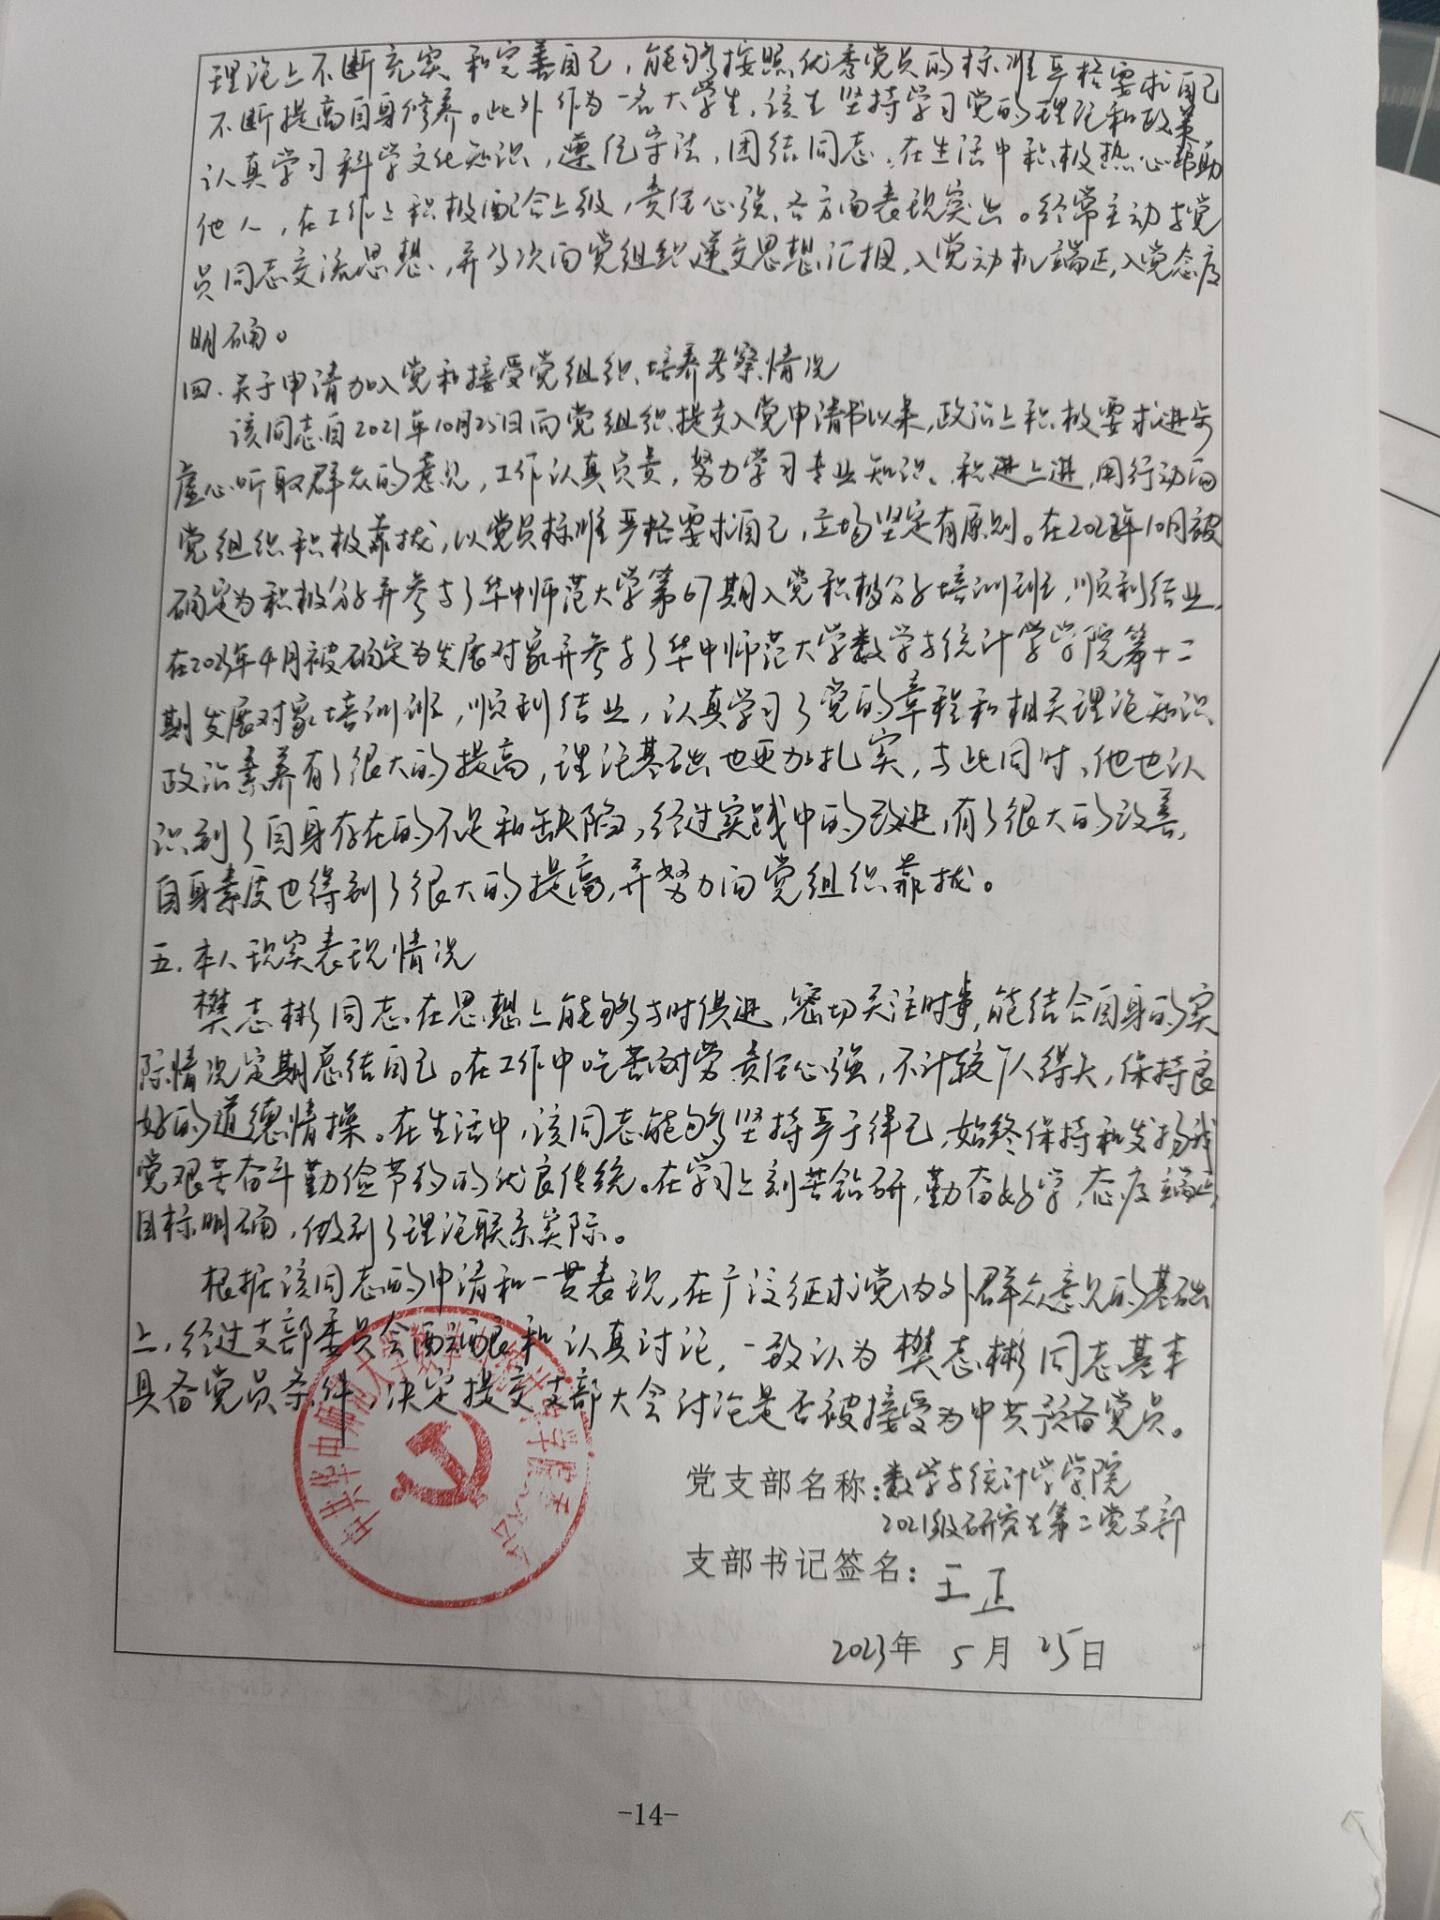 理论上不断充实和完善自己，能够按照优秀党员的标准严格要求自己
不断提高自身修养。此外作为一名大学生，该生坚持学习党的理论和政策
认真学习科学文化知识，遵纪守法，团结同志，在生活中积极热心帮助
他人，在工作上积极配合上级，责任心强、各方面表现突出。经常主动找党
员同志交流思想，并多次向党组织递交思想汇报，入党动机端正，入党态度
明确。
四.关于申请加入党和接受党组织培养考察情况
该同志自2021年10月25日向党组织提交入党申请书以来，政治上积极要求进步
虚心听取群众的意见，工作认真负责，努力学习专业知识、积进上进，用行动向
党组织积极靠拢，以党员标准严格要求自己，立场坚定有原则。在年10月被
确定为积极分子并参与了华中师范大学第67期入党积极分子培训班，顺利结业，
在年4月被确定为发展对象并参与了华中师范大学数学与统计学学院第十二
期发展对象培训班，顺利结业，认真学习了党的章程和相关理论知识
政治素养有了很大的提高，理论基础也更加扎实，与此同时，他也认
识到了自身存在的不足和缺陷，经过实践中的改进，有了很大的改善，
自身素质也得到了很大的提高，并努力向党组织靠拢。
五.本人现实表现情况
樊志彬同志在思想上能够与时俱进，密切关注时事，能结合自身的实
际情况定期总结自己。在工作中吃苦耐劳责任心强，不计较个人得失，保持良
好的道德情操。在生活中，该同志能够坚持严于律己，始终保持和发扬我
党艰苦奋斗勤俭节约的优良传统。在学习上刻苦钻研，勤奋好学，态度端正，
目标明确，做到了理论联系实际。
根据该同志的申请和一贯表现，在广泛征求党内外群众意见的基础
上，经过支部委员会和认真讨论，一致认为樊志彬同志基本
具备党员条件，决定提交支部大会讨论是否被接受为中共预备党员。
党支部名称：数学与统计学学院
2021级研究生第二党支部
支部书记签名：王正
2023年 5月 25日
-14-